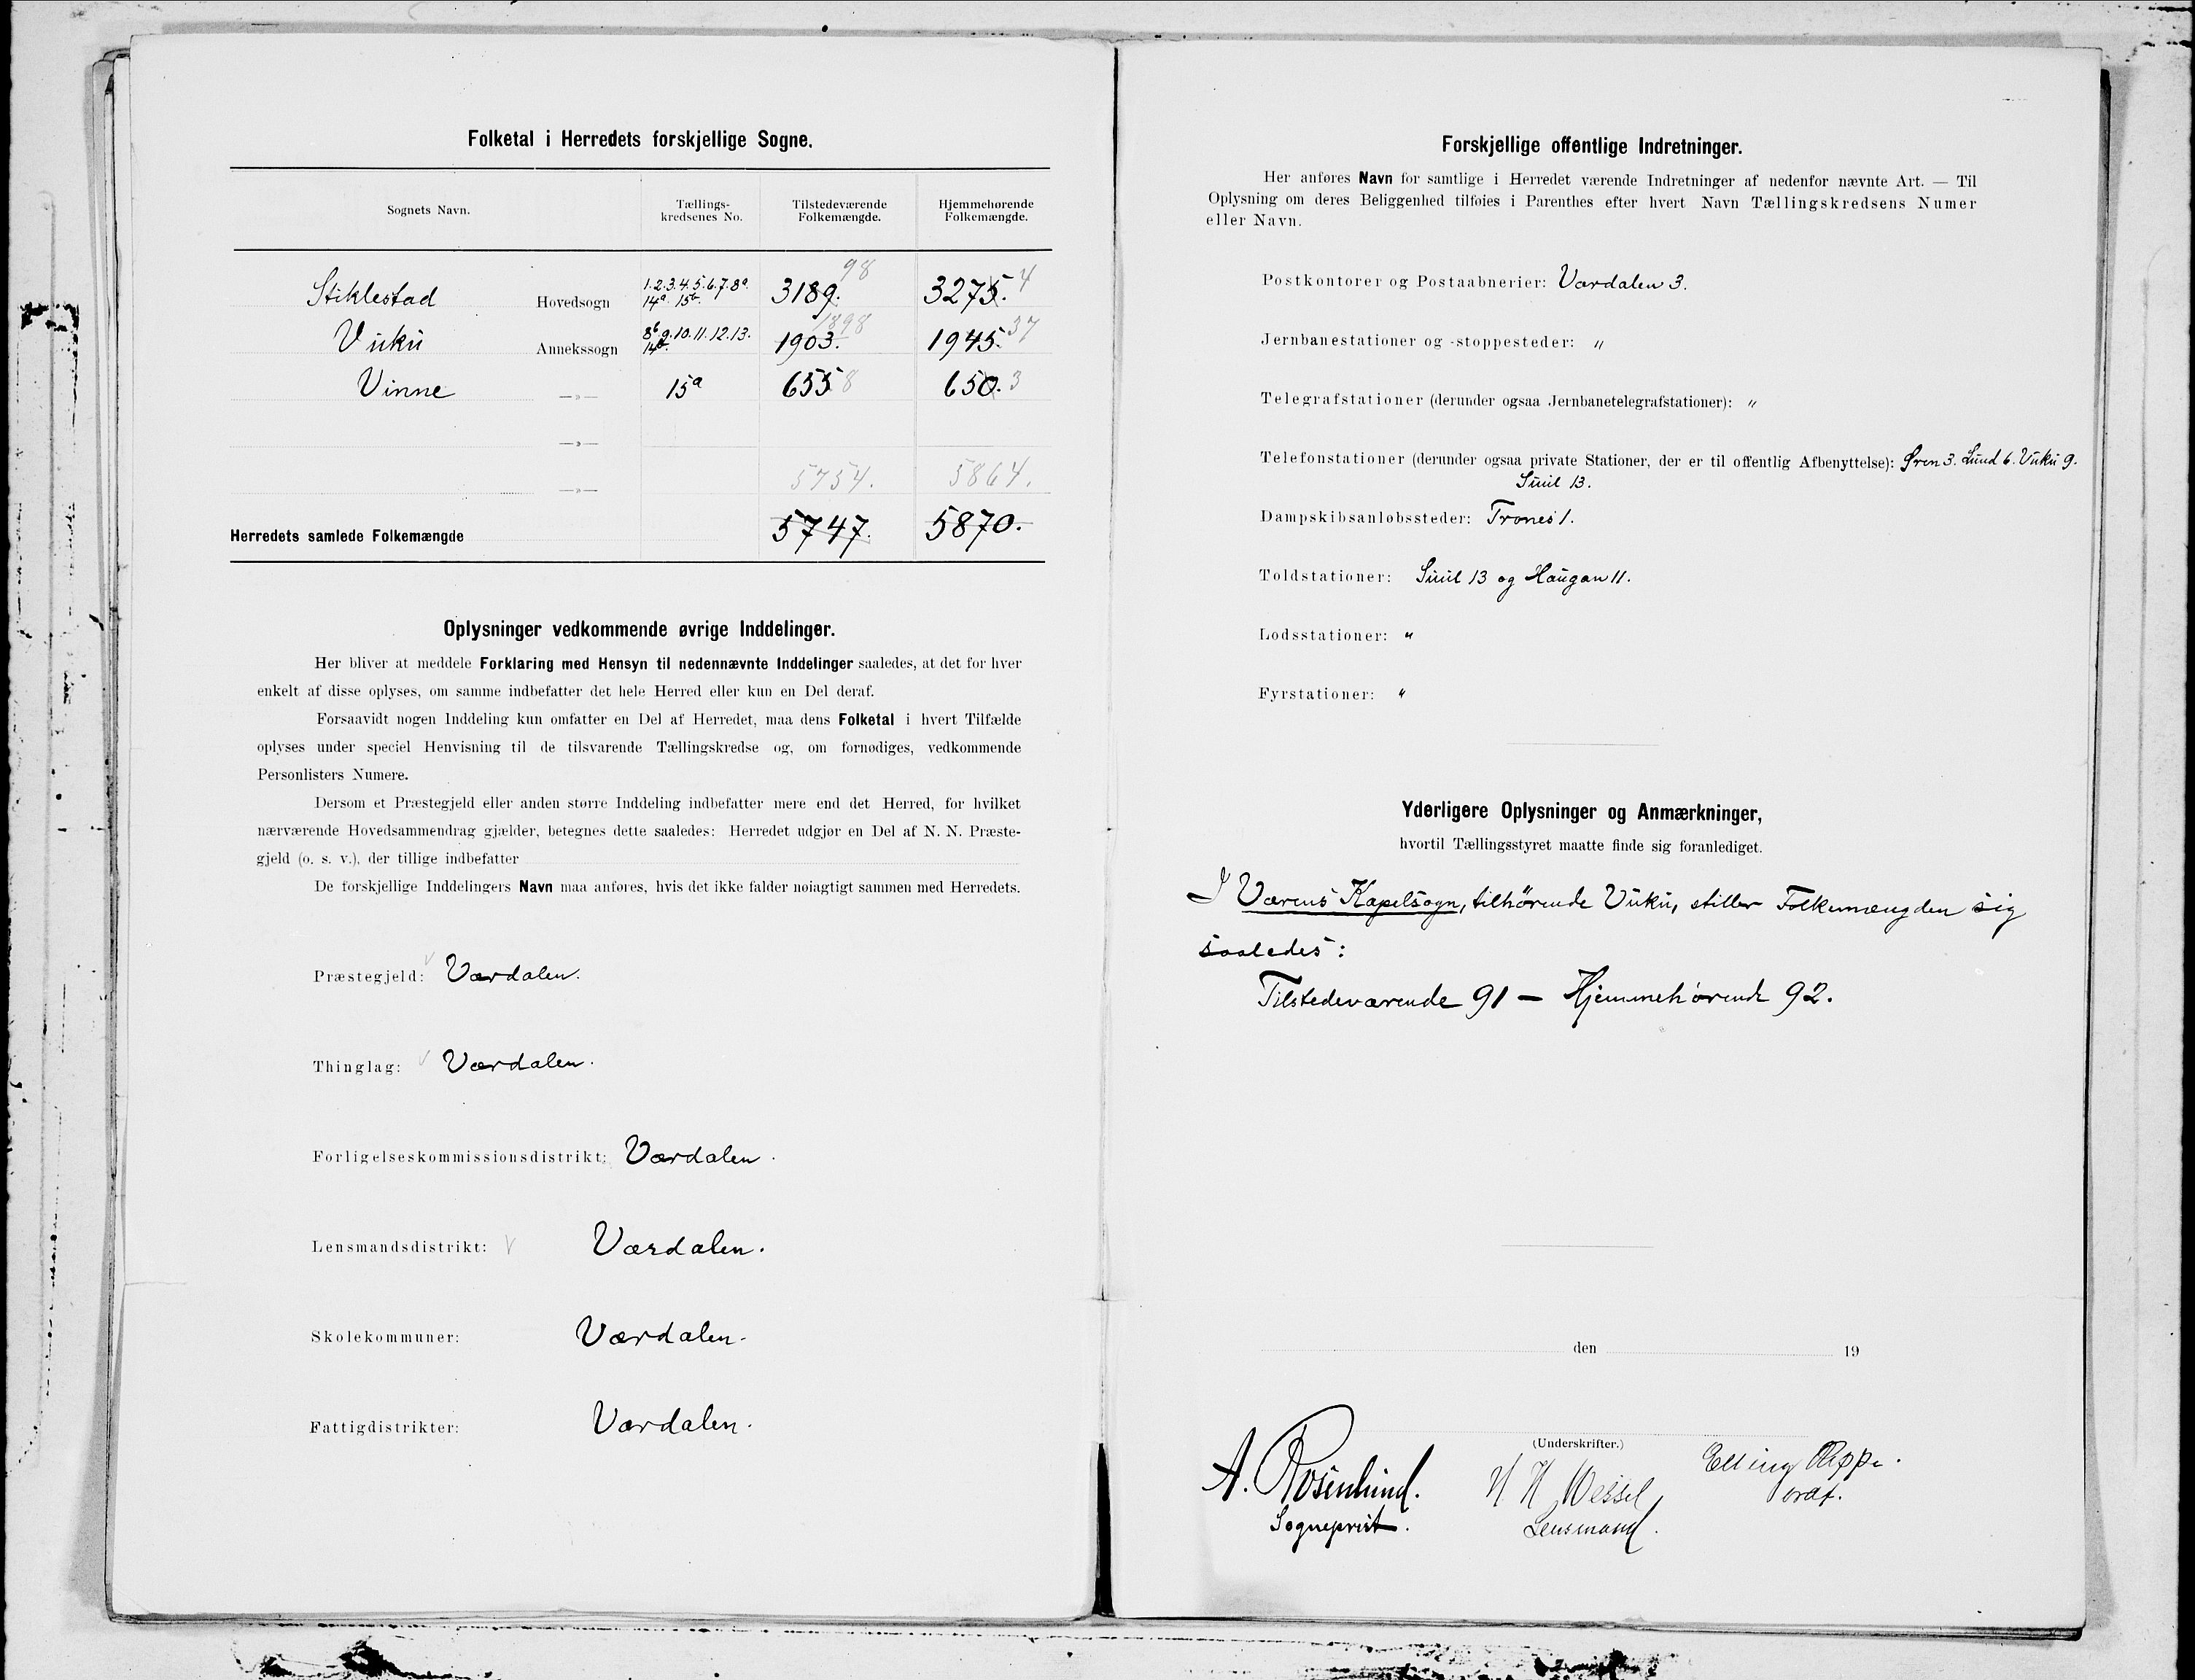 Folketal i Herredets forskjellige Sogne.
Sognets Navn.
Tællings-
kredsenes No.
Tilstedeværende
Folkemængde.
Hjemmehørende
Folkemængde.
98 4
Stiklestad Hovedsogn 1.2.3.4.5.6.7.8a. 14a. 15b. 3189. 3275.
1898 37
Vuku Annekssogn 8b 9.10.11.12.13. 1903. 1945.
Vinne —»— 15a 655 8 650. 3
—»—
—»— 5754. 5864.
Herredets samlede Folkemængde 5747. 5870.
Oplysninger vedkommende øvrige Inddelinger.
Her bliver at meddele Forklaring med Hensyn til nedennævnte Inddelinger saaledes, at det for hver
enkelt af disse oplyses, om samme indbefatter det hele Herred eller kun en Del deraf.
Forsaavidt nogen Inddeling kun omfatter en Del af Herredet, maa dens Folketal i hvert Tilfælde
oplyses under speciel Henvisning til de tilsvarende Tællingskredse og, om fornødiges, vedkommende
Personlisters Numere.
Dersom et Præstegjeld eller anden større Inddeling indbefatter mere end det Herred, for hvilket
nærværende Hovedsammendrag gjælder, betegnes dette saaledes: Herredet udgjør en Del af N. N. Præste-
gjeld (o. s. v.), der tillige indbefatter
De forskjellige Inddelingers Navn maa anføres, hvis det ikke falder nøiagtigt sammen med Herredets.
Præstegjeld: Værdalen.
Thinglag: Værdalen.
Forligelseskommissionsdistrikt: Værdalen.
Lensmandsdistrikt: Værdalen.
Skolekommuner: Værdalen.
Fattigdistrikter: Værdalen.
Forskjellige offentlige Indretninger.
Her anføres Navn for samtlige i Herredet værende Indretninger af nedenfor nævnte Art. — Til
Oplysning om deres Beliggenhed tilføies i Parenthes efter hvert Navn Tællingskredsens Numer
eller Navn.
Postkontorer og Postaabnerier: Værdalen 3.
Jernbanestationer og -stoppesteder: "
Telegrafstationer (derunder ogsaa Jernbanetelegrafstationer): "
Telefonstationer (derunder ogsaa private Stationer, der er til offentlig Afbenyttelse): Øren 3. Lund 6. Vuku 9.
Suul 13.
Dampskibsanløbssteder: Trones 1.
Toldstationer: Suul 13 og Haugan 11.
Lodsstationer: "
Fyrstationer: "
Yderligere Oplysninger og Anmærkninger,
hvortil Tællingsstyret maatte finde sig foranlediget.
I Værens Kapelsogn, tilhørende Vuku, stiller Folkemængden sig
saaledes:
Tilstedeværende 91 — Hjemmehørende 92.
den 19
(Underskrifter.)
A. Rosenlund.
Sogneprest.
H Wessel
Lensmand.
Elling